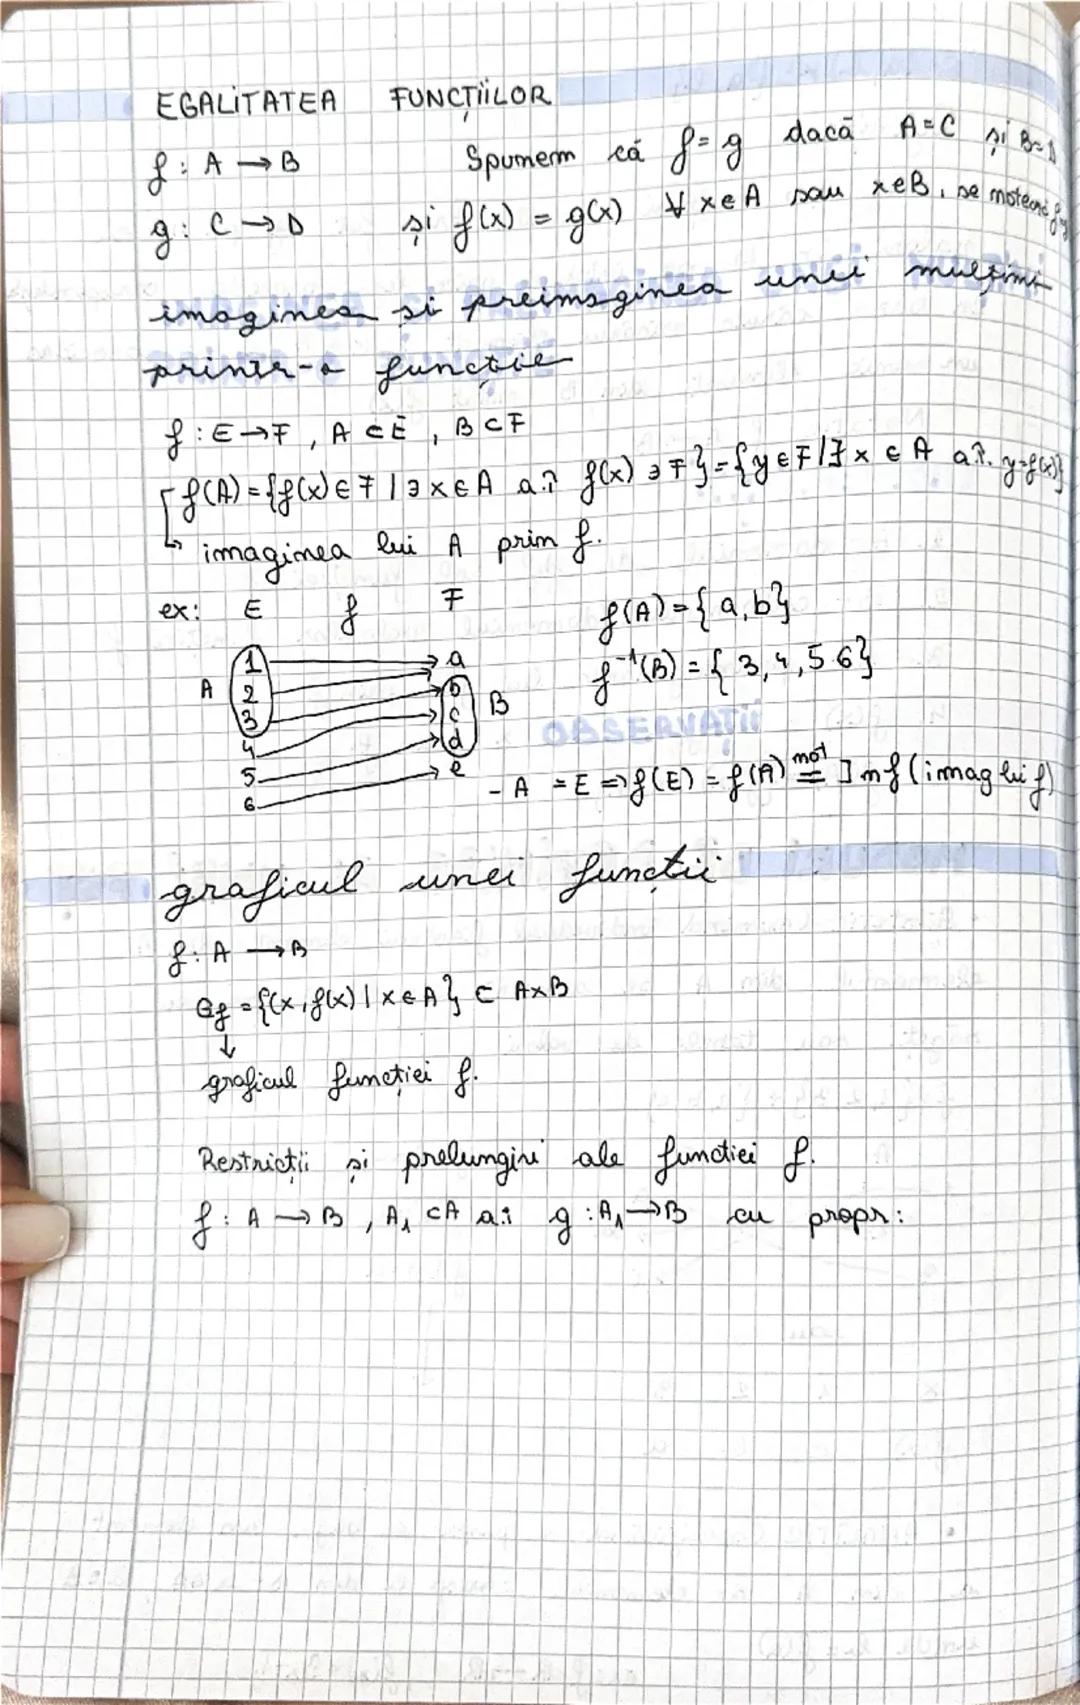 EGALITATEA FUNCȚIILOR
f : A → B Spunem că f = g dacă A = C și B = D
g : C → D și f(x) = g(x) ∀ x ∈ A sau x ∈ B, se notează
imaginea si preimaginea unei mulțimi
printr-o funcție
f : E → F , A ⊂ E , B ⊂ F
f(A) = {f(x) ∈ F / ∃ x ∈ A a.î f(x) ∋ F} = {y ∈ F / ∃ x ∈ A a.î. y = f(x)}
↳ imaginea lui A prin f.
ex: E f F f(A) = { a, b}
f⁻¹(B) = { 3, 4, 5 6}
A B
1 a
2 b
3 c
4 d
5 e
6
- A = E ⇒ f(E) = f(A) not = Imf (imag lui f)
graficul unei funcții
f : A → B
Gf = {(x, f(x) | x ∈ A} ⊂ A×B
↓
graficul funcției f.
Restricții și prelungiri ale funcției f.
f : A → B , A₁ ⊂ A a.î g : A₁ → B cu propr: